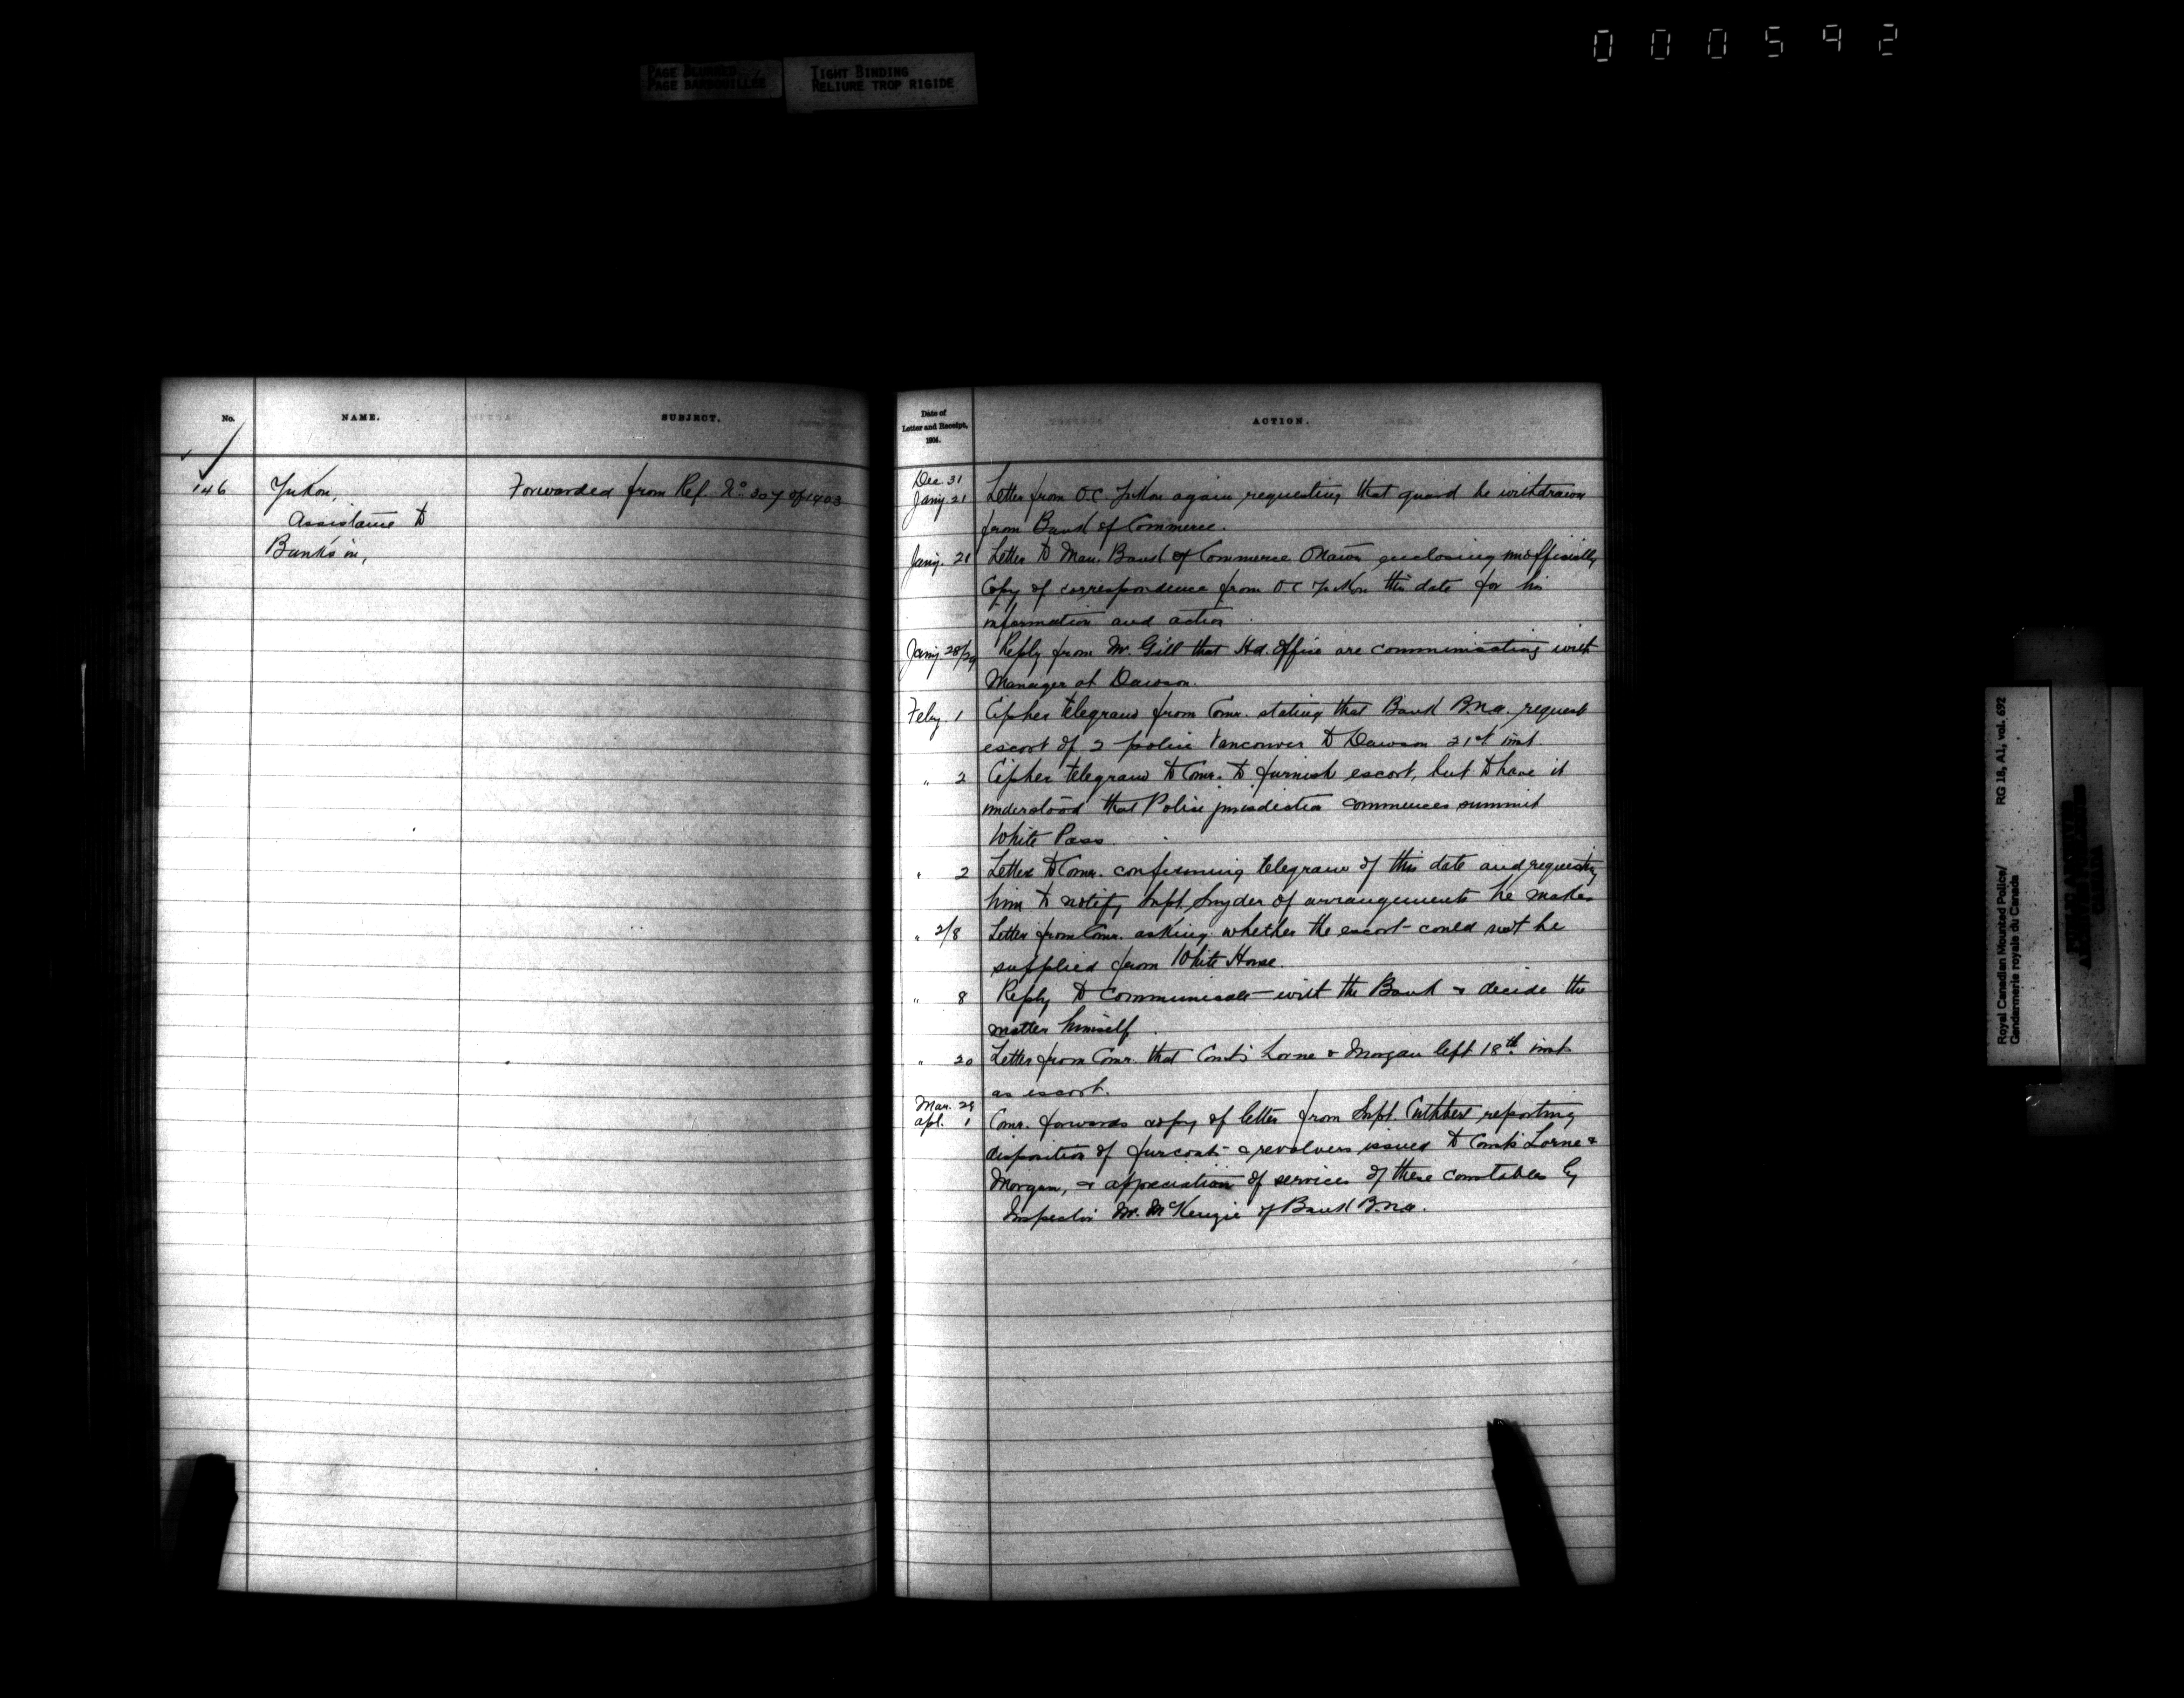 000592
PAGE BLURRED
PAGE BARBOUILLEE
TIGHT BINDING
RELIURE TROP RIGIDE
No.
NAME.
SUBJECT.
146
Yukon,
Assistance to
Banks in,
Forwarded from Ref. No 307 of 1903
Date of
Letter and Receipt,
1904.
ACTION.
Dec 31
Jany. 21 Letter from O.C. Yukon again requesting that guard be withdrawn
from Bank of Commerce.
Jany. 21 Letter to Man. Bank of Commerce Ottawa enclosing unofficially
Copy of correspondence from O.C Yukon this date for his
information and action.
Jany. 28/29 Reply from Mr. Gill that Hd. Office are communicating with
Manager at Dawson.
Feby. 1 Cipher telegram from Comr. stating that Bank B.N.A. request
escort of 2 police Vancouver to Dawson 21st inst.
" 2 Cipher telegram to Comr. to furnish escort, but to have it
understood that Police jurisdiction commences summit
White Pass.
" 2 Letter to Comr. confirming telegram of this date and requesting
him to notify Supt. Snyder of arrangements he makes
" 2/8 Letter from Comr. asking whether the escort could not be
supplied from White Horse.
" 8 Reply to communicate with the Bank & decide the
matter himself.
" 20 Letter from Comr. that Const's Lorne & Morgan left 18th inst
as escort.
Mar. 29
Apl. 1 Comr. forwards copy of letter from Supt. Cuthbert reporting
disposition of fur coats & revolvers issued to Const's Lorne &
Morgan, & appreciation of services of these constables by
Inspector Mr. McKenzie of Bank B.N.A.
Royal Canadian Mounted Police/ RG 18, A1, vol. 692
Gendarmerie royale du Canada